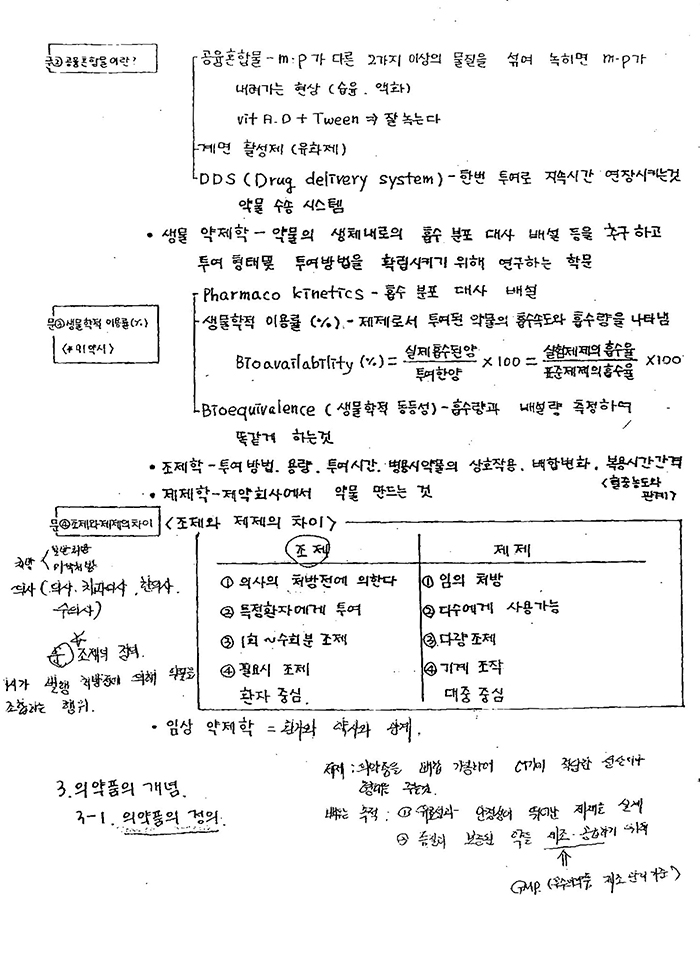 문② 공융혼합물이란?
공융혼합물 - m.p가 다른 2가지 이상의 물질을 섞여 녹히면 m.p가
내려가는 현상 (습윤. 액화)
vit A.D + Tween ⇒ 잘 녹는다
계면 활성제 (유화제)
DDS (Drug delivery system) - 한번 투여로 지속시간 연장시키는것
약물 수송 시스템
• 생물 약제학 - 약물의 생체내로의 흡수 분포 대사 배설 등을 추구하고
투여 형태및 투여방법을 확립시키기 위해 연구하는 학문
Pharmaco kinetics - 흡수 분포 대사 배설
문③ 생물학적 이용률(%)
생물학적 이용률 (%) - 제제로서 투여된 약물의 흡수속도와 흡수량을 나타냄
Bioavailability (%) = 실제흡수된양/투여한양 × 100 = 실험제제의흡수율/표준제제의흡수율 × 100
Bioequivalence (생물학적 동등성) - 흡수량과 배설량 측정하여
똑같게 하는것
• 조제학 - 투여방법. 용량. 투여시간. 병용시약물의 상호작용. 배합변화. 복용시간간격
<혈중농도와
관계>
• 제제학 - 제약회사에서 약물 만드는 것
문④ 조제와제제의차이
<조제와 제제의 차이>
조제 제제
① 의사의 처방전에 의한다 ① 임의 처방
② 특정환자에게 투여 ② 다수에게 사용가능
③ 1회 ~ 수회분 조제 ③ 다량조제
④ 필요시 조제 ④ 기계 조작
환자 중심. 대중 중심
의사 (의사. 치과의사. 한의사.
수의사)
조제의 정의
행위.
• 임상 약제학 = 환자와 약사와 관계.
3. 의약품의 개념.
3-1. 의약품의 정의.
제제 :
품질이 보증된 약을 제조. 공급하기
GMP.